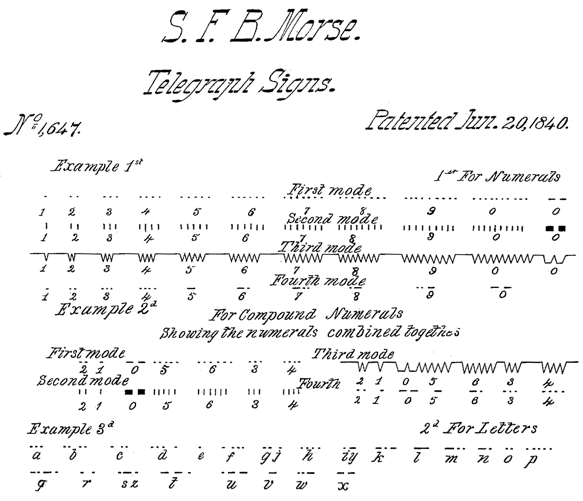 S. F. B. Morse.
Telegraph Signs.
No 1,647.
Patented Jun. 20, 1840.
Example 1st
1st For Numerals
First mode
1 2 3 4 5 6 7 8 9 0 0
Second mode
1 2 3 4 5 6 7 8 9 0 0
Third mode
1 2 3 4 5 6 7 8 9 0 0
Fourth mode
1 2 3 4 5 6 7 8 9 0
Example 2d
For Compound Numerals
Showing the numerals combined together
First mode
2 1 0 5 6 3 4
Second mode
2 1 0 5 6 3 4
Third mode
2 1 0 5 6 3 4
Fourth
2 1 0 5 6 3 4
Example 3d
2d For Letters
a b c d e f gj h iy k l m n o p
q r sz t u v w x